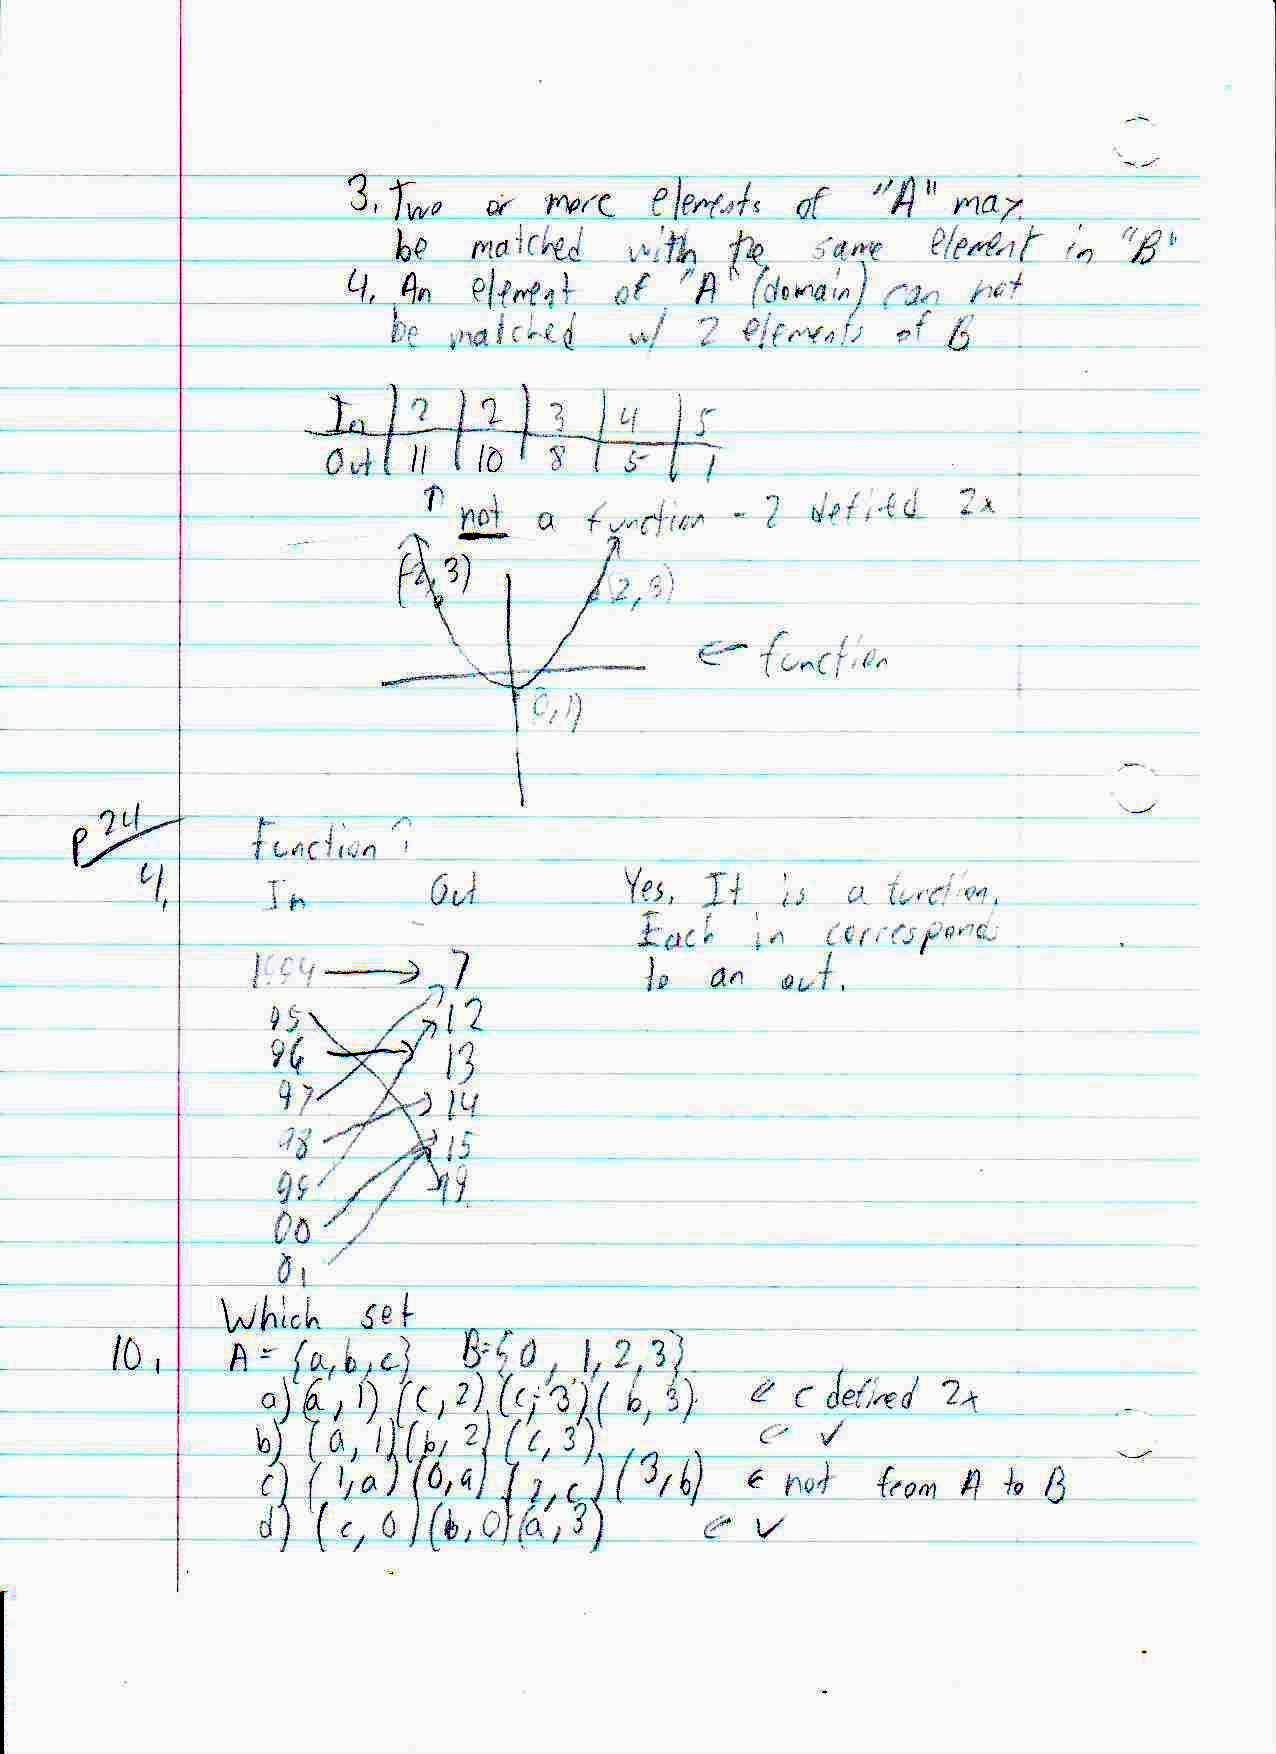 3. Two or more elements of "A" may
be matched with the same element in "B"
4. An element of "A" (domain) can not
be matched w/ 2 elements of B
In | 2 | 2 | 3 | 4 | 5
Out | 11 | 10 | 8 | 5 | 1
↑ not a function - 2 defined 2x
(-2, 3) (2, 3)
← function
(0, 1)
p 24
Function?
4. In Out Yes. It is a function.
Each in corresponds
to an out.
1994 → 7
95 12
96 → 13
97 14
98 15
99 19
00
01
Which set
10. A = {a, b, c} B = {0, 1, 2, 3}
a) (a, 1) (c, 2) (c, 3) (b, 3) ← c defined 2x
b) (a, 1) (b, 2) (c, 3) ← ✓
c) (1, a) (0, a) (2, c) (3, b) ← not from A to B
d) (c, 0) (b, 0) (a, 3) ← ✓